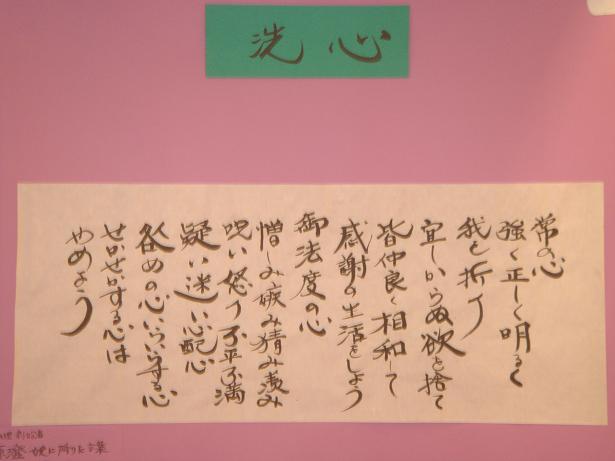 洗心
常の心
強く正しく明るく
我を折り
宜しからぬ欲を捨て
皆仲良く相和して
感謝の生活をしよう
御法度の心
憎しみ嫉み猜み羨み
呪い怒り不平不満
疑い迷い心配心
咎めの心いらいらする心
せかせかする心は
やめよう